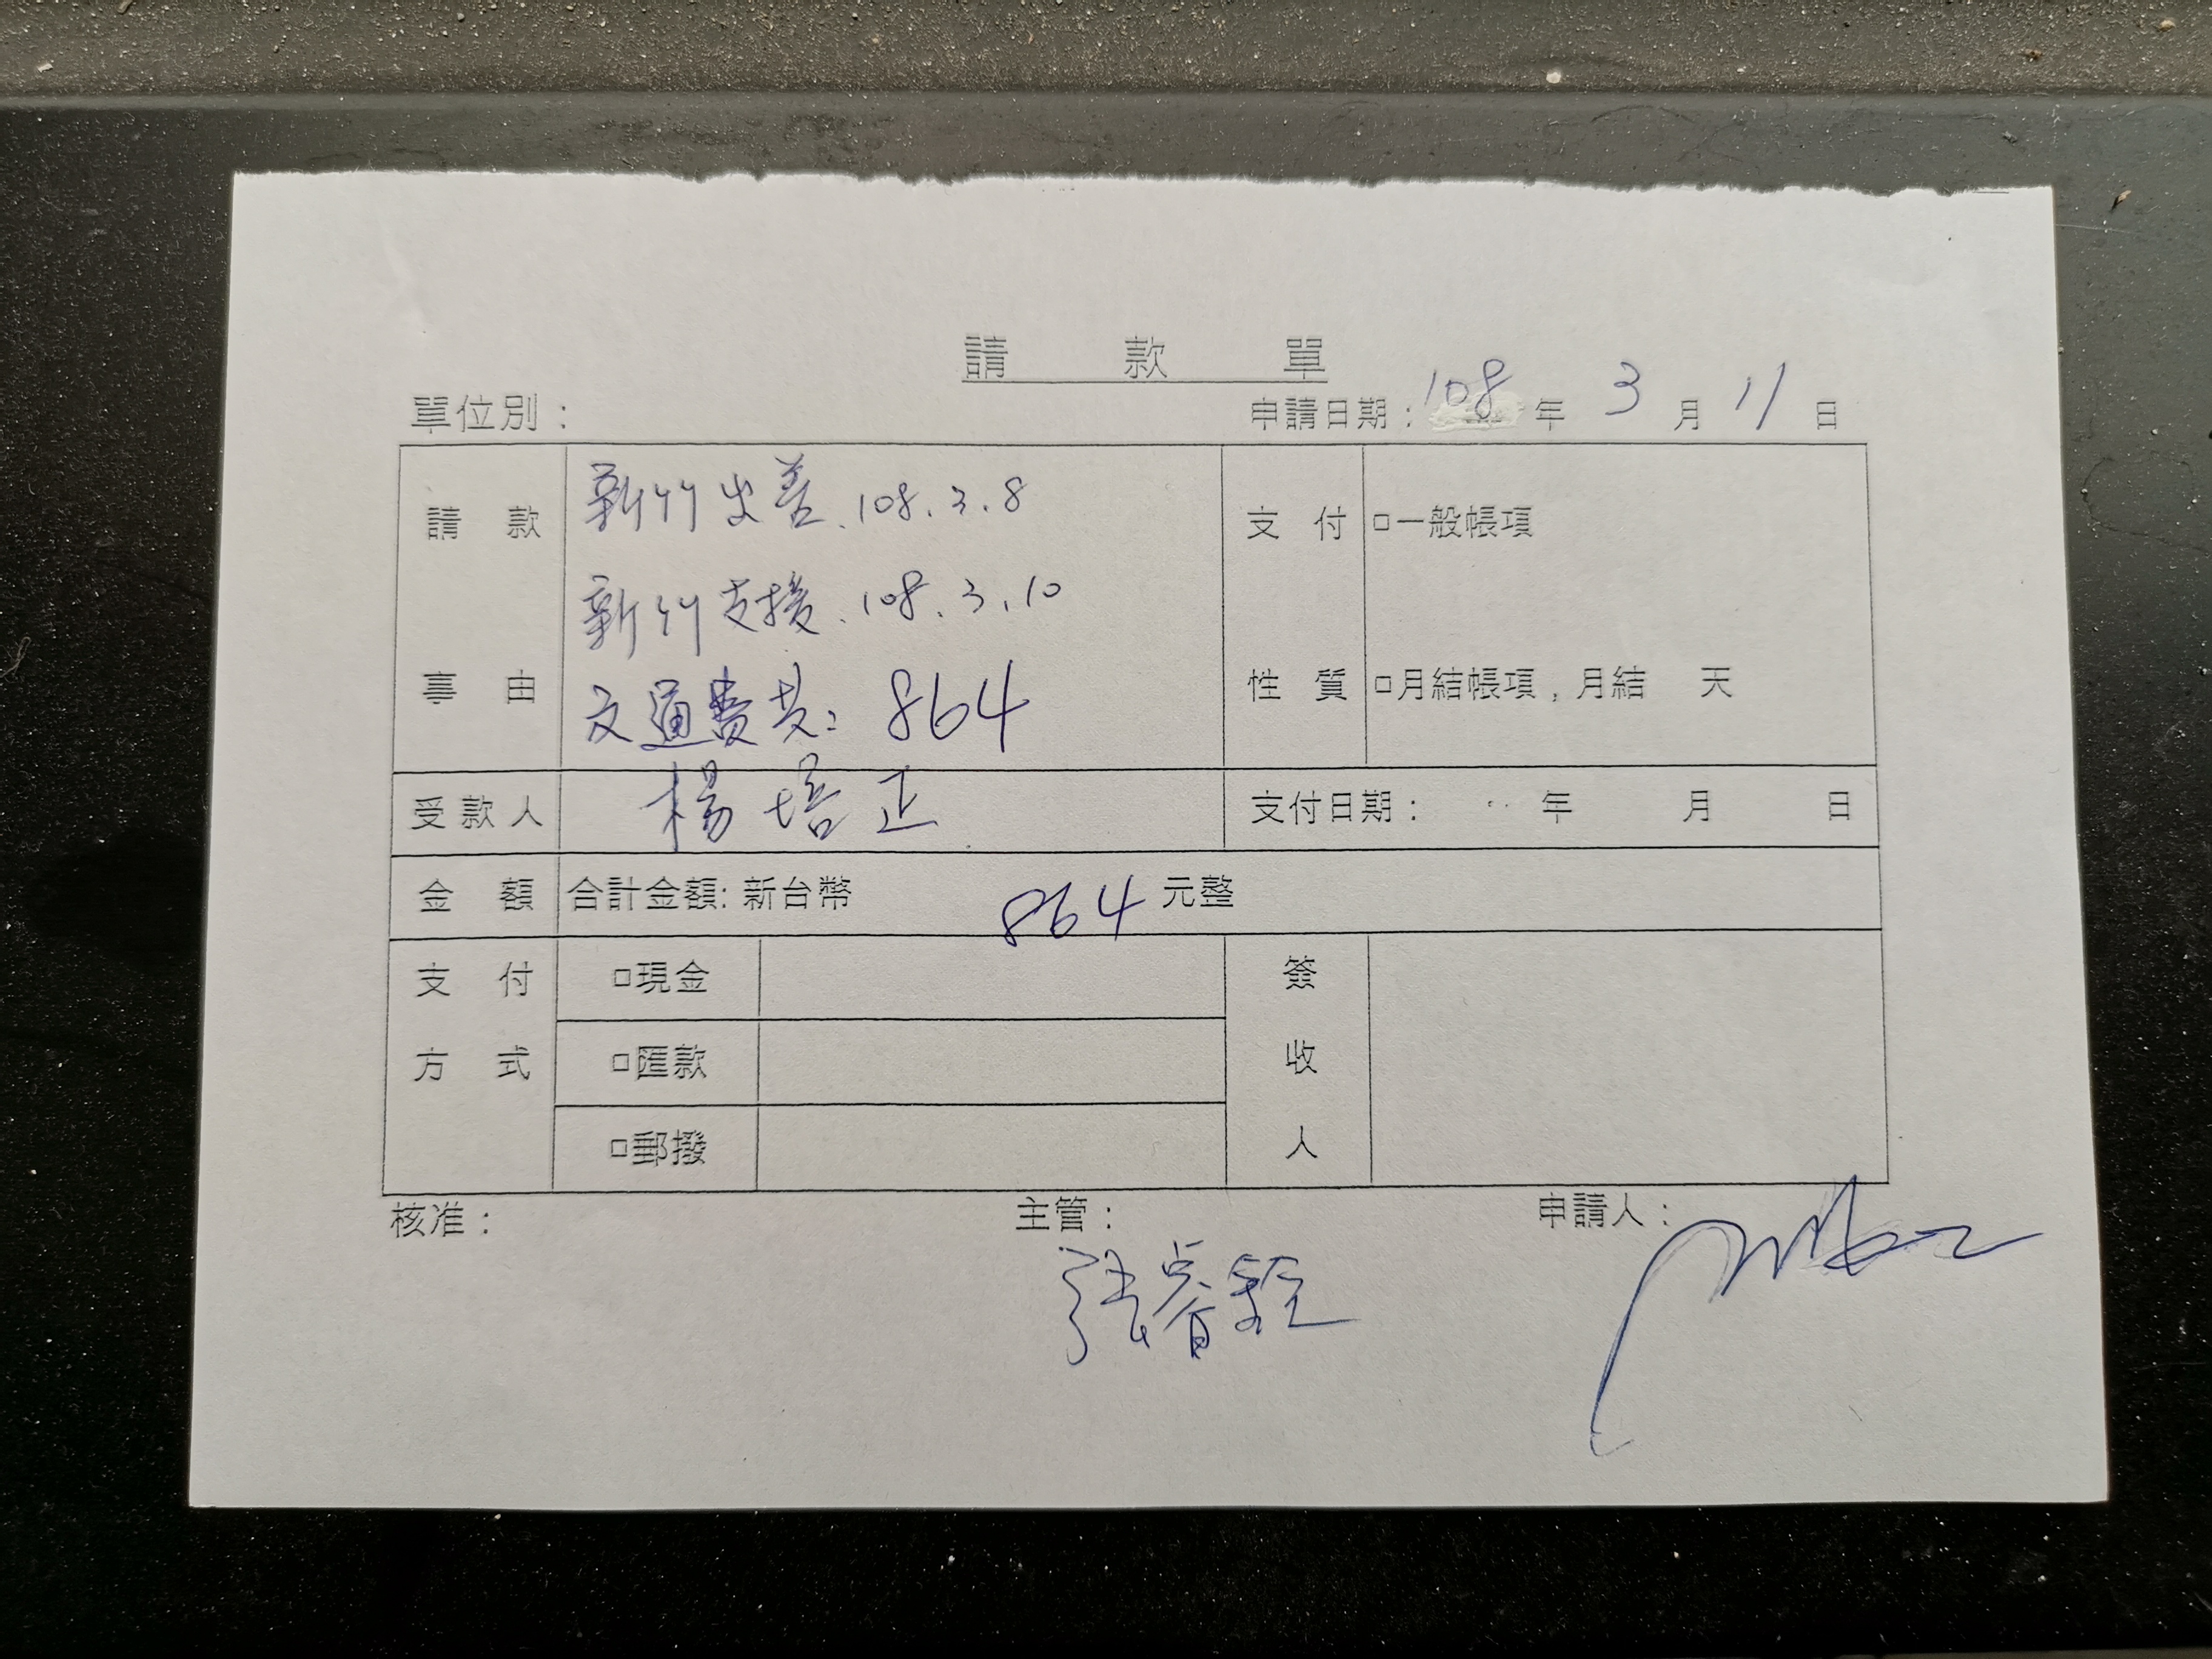 請 款 單
單位別： 申請日期：108 年 3 月 11 日
請 款 新竹出差、108.3.8 支 付 □一般帳項
新竹支援、108.3.10
事 由 交通費共：864 性 質 □月結帳項，月結 天
受款人 楊培正 支付日期： 年 月 日
金 額 合計金額: 新台幣 864 元整
支 付 □現金 簽
方 式 □匯款 收
□郵撥 人
核准： 主管： 申請人：
張睿